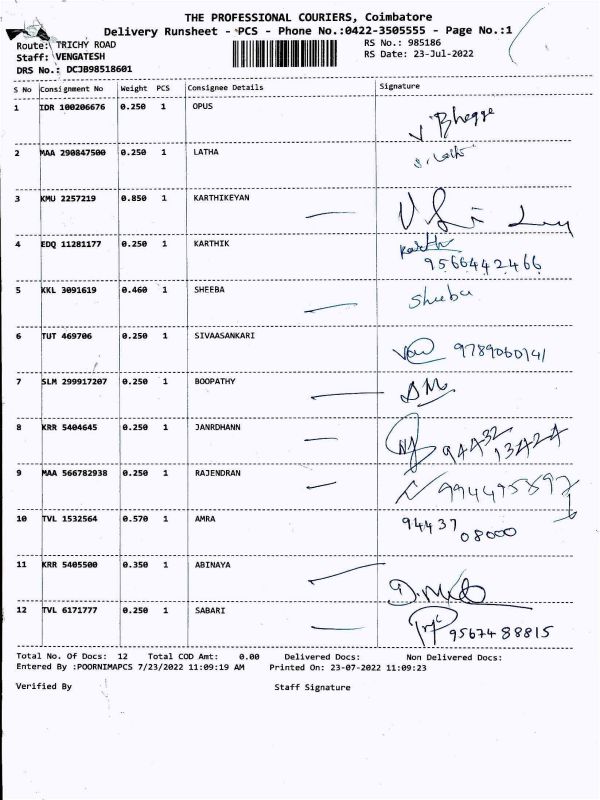 THE PROFESSIONAL COURIERS, Coimbatore
Delivery Runsheet - PCS - Phone No.:0422-3505555 - Page No.:1
Route: TRICHY ROAD RS No.: 985186
Staff: VENGATESH RS Date: 23-Jul-2022
DRS No.: DCJB98518601
S No Consignment No Weight PCS Consignee Details Signature
1 IDR 100206676 0.250 1 OPUS
2 MAA 290847500 0.250 1 LATHA
3 KMU 2257219 0.850 1 KARTHIKEYAN
4 EDQ 11281177 0.250 1 KARTHIK
9566442466
5 KKL 3091619 0.460 1 SHEEBA Sheeba
6 TUT 469706 0.250 1 SIVAASANKARI 9789060141
7 SLM 299917207 0.250 1 BOOPATHY
8 KRR 5404645 0.250 1 JANRDHANN 94432
13424
9 MAA 566782938 0.250 1 RAJENDRAN
10 TVL 1532564 0.570 1 AMRA 94437
08000
11 KRR 5405500 0.350 1 ABINAYA
12 TVL 6171777 0.250 1 SABARI 9567488815
Total No. Of Docs: 12 Total COD Amt: 0.00 Delivered Docs: Non Delivered Docs:
Entered By :POORNIMAPCS 7/23/2022 11:09:19 AM Printed On: 23-07-2022 11:09:23
Verified By Staff Signature